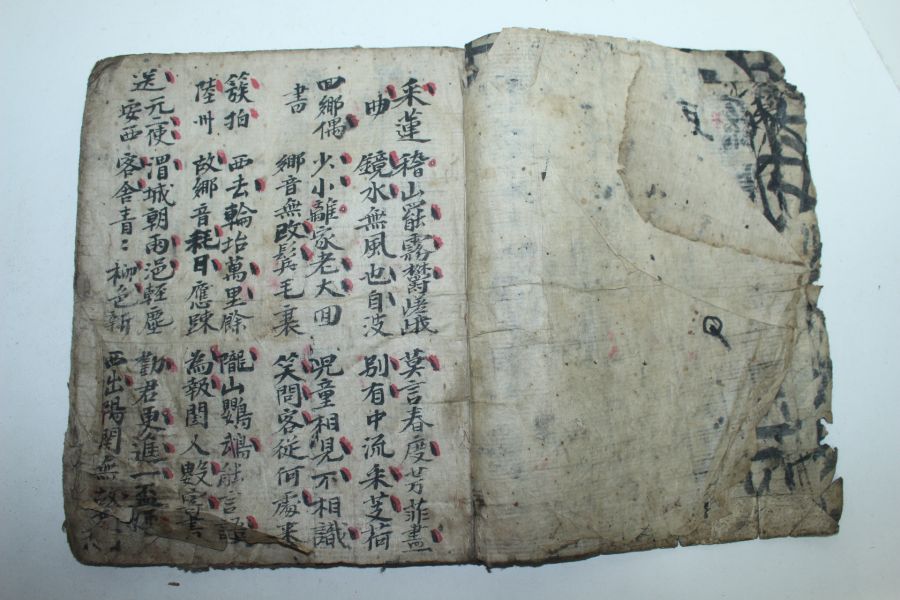 采蓮 稽山罷霧欝嵯峨 莫言春度芳菲盡
曲 鏡水無風也自波 別有中流采芝荷
回鄉偶 少小離家老大囘 児童相見不相識
書 鄉音無改鬂毛衰 笑問客從何處来
簇拍 西去輪抬萬里餘 隴山鸚鵡能言語
陸州 故鄉音耗日應踈 為報閨人數寄書
送元二使 渭城朝雨浥輕塵 勸君更進一盃酒
安西 客舍青〻柳色新 西出陽関無故人